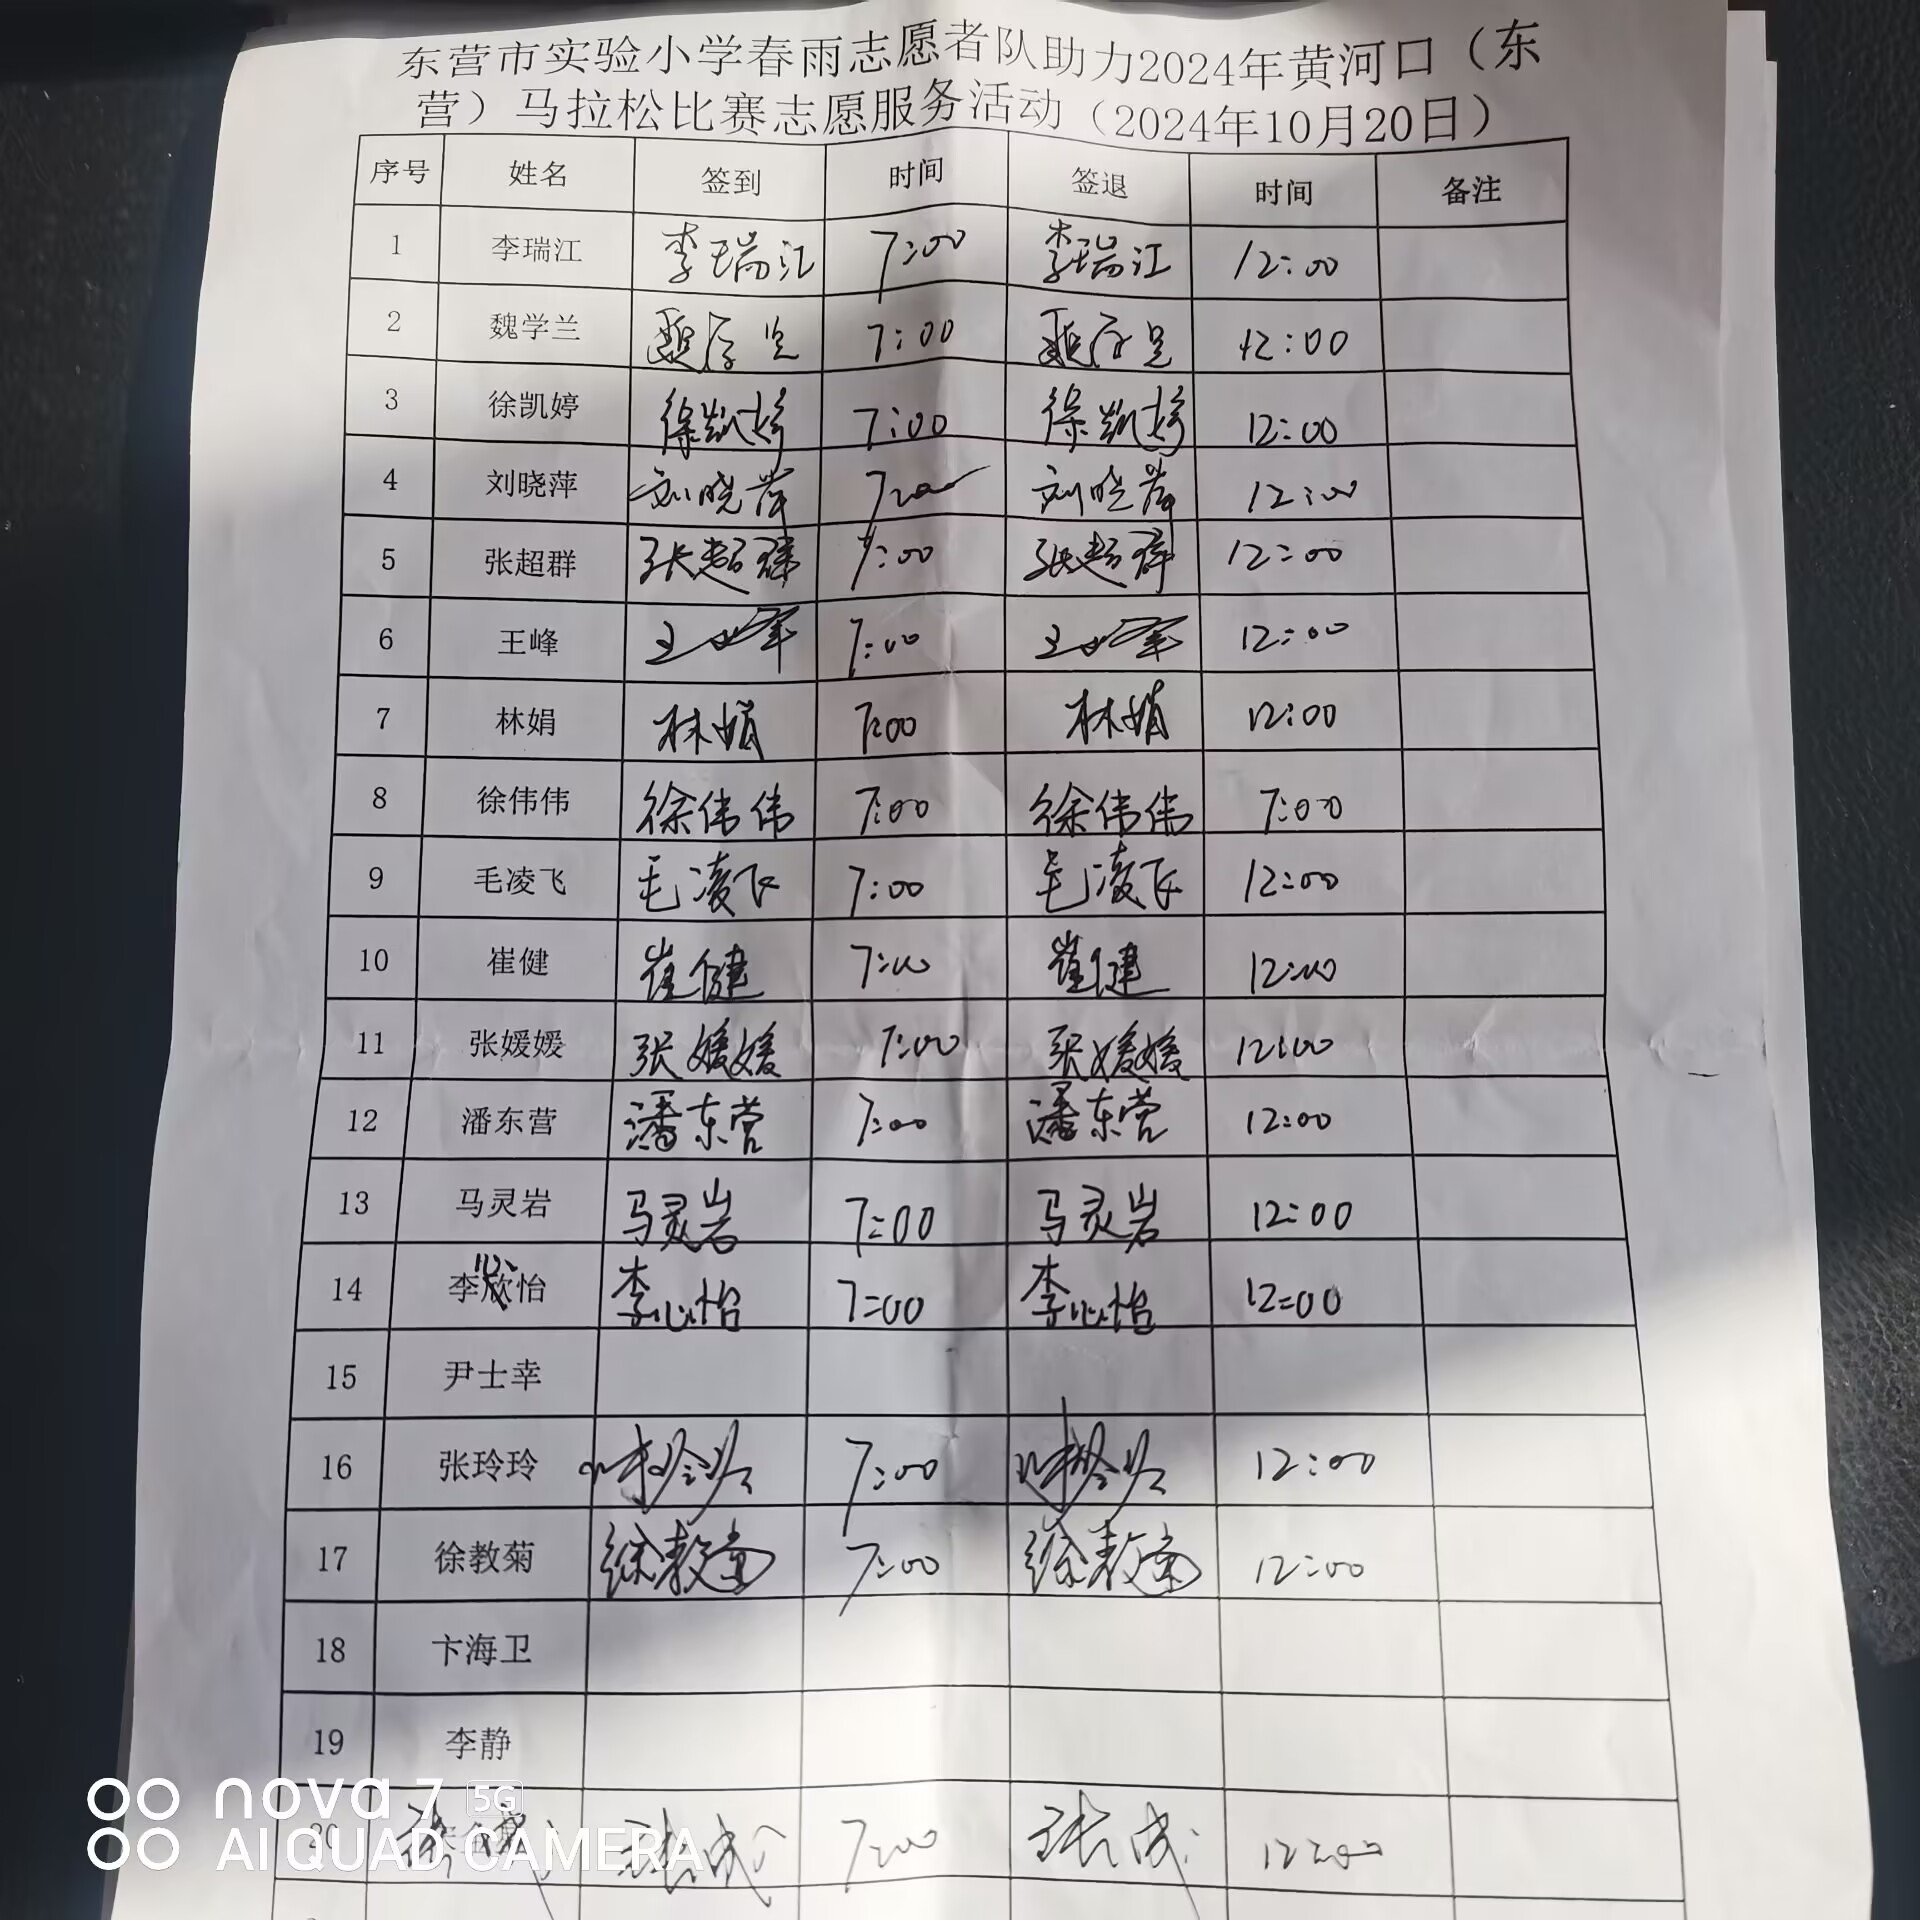 东营市实验小学春雨志愿者队助力2024年黄河口（东
营）马拉松比赛志愿服务活动（2024年10月20日）
序号 姓名 签到 时间 签退 时间 备注
1 李瑞江 李瑞江 7:00 李瑞江 12:00
2 魏学兰 魏学兰 7:00 魏学兰 12:00
3 徐凯婷 徐凯婷 7:00 徐凯婷 12:00
4 刘晓萍 刘晓萍 7:00 刘晓萍 12:00
5 张超群 张超群 7:00 张超群 12:00
6 王峰 王峰 7:00 王峰 12:00
7 林娟 林娟 7:00 林娟 12:00
8 徐伟伟 徐伟伟 7:00 徐伟伟 7:00
9 毛凌飞 毛凌飞 7:00 毛凌飞 12:00
10 崔健 崔健 7:00 崔健 12:00
11 张媛媛 张媛媛 7:00 张媛媛 12:00
12 潘东营 潘东营 7:00 潘东营 12:00
13 马灵岩 马灵岩 7:00 马灵岩 12:00
14 李心怡 李心怡 7:00 李心怡 12:00
15 尹士幸
16 张玲玲 张玲玲 7:00 张玲玲 12:00
17 徐教菊 徐教菊 7:00 徐教菊 12:00
18 卞海卫
19 李静
20 7:00 12:00
nova 7 5G
AI QUAD CAMERA